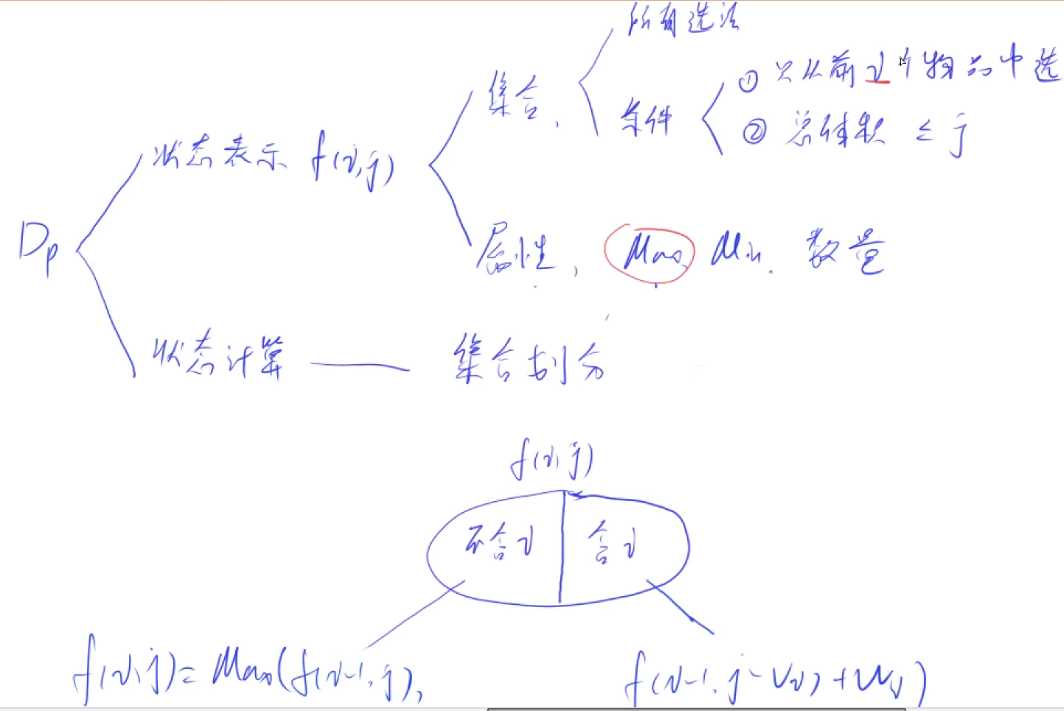 所有选法
集合.
条件
① 只从前i个物品中选
② 总体积 ≤ j
状态表示 f(i,j)
Dp
属性, Max, Min. 数量
状态计算 —— 集合划分
f(i,j)
不含i
含i
f(i,j)= Max(f(i-1,j),
f(i-1, j-Vi)+Wi)